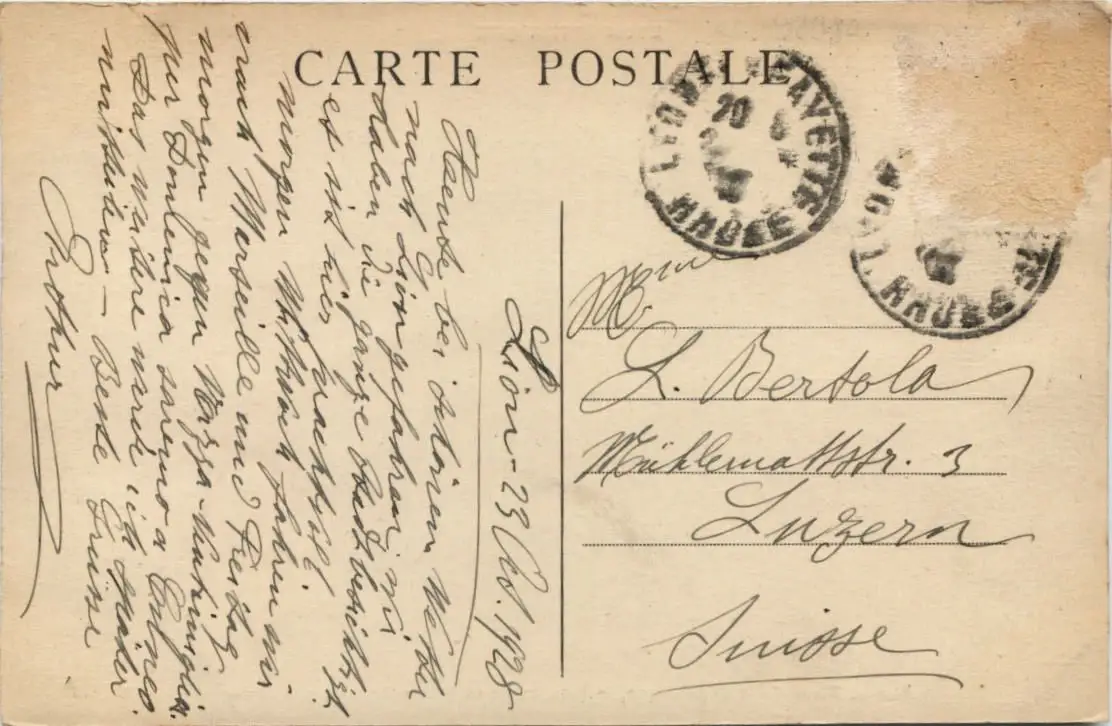 CARTE POSTALE
LYON LAFAYETTE
20
RHONE
RHONE
Lion - 23 Oct. 1928
Heute bei schönem Wetter
nach Lion gefahren. Wir
haben die ganze Stadt besichtigt
es ist hier prachtvoll
Morgen Mittwoch fahren wir
nach Marseille und Freitag
morgen gegen Nizza - Ventimiglia.
per Domenica saremo a
Das weitere werde ich später
mitteilen - Beste Grüsse
Arthur
Mme
L. Bertola
Mühlemattstr. 3
Luzern
Suisse